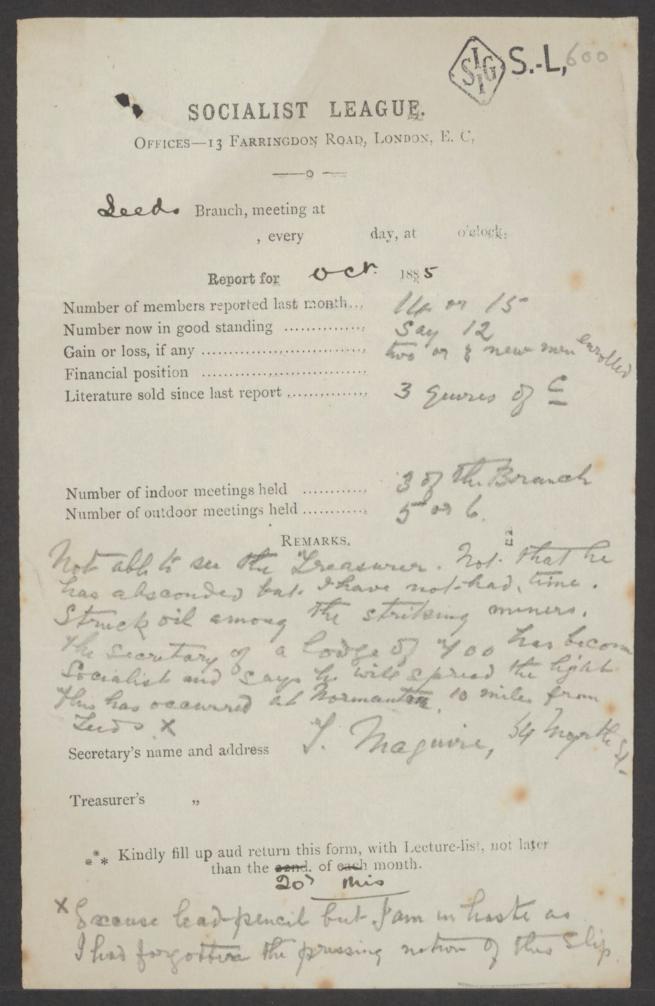 S.-L, 600
SOCIALIST LEAGUE.
OFFICES—13 FARRINGDON ROAD, LONDON, E. C,
Leeds Branch, meeting at
, every day, at o'clock.
Report for Oct. 1885
Number of members reported last month... 14 or 15
Number now in good standing ............... Say 12
Gain or loss, if any .............................. two or 3 new men enrolled
Financial position ..............................
Literature sold since last report ............... 3 quires of C
Number of indoor meetings held ............ 3 of the Branch
Number of outdoor meetings held ............ 5 or 6.
REMARKS.
Not able to see the Treasurer. Not that he
has absconded but I have not had time.
Struck oil among the striking miners.
The secretary of a lodge of 400 has become
Socialist and says he will spread the light
this has occurred at Normanton, 10 miles from
Leeds. X
Secretary's name and address T. Maguire, 54 North St.
Treasurer's „
*** Kindly fill up aud return this form, with Lecture-list, not later
than the 22nd. of each month.
20 this
X Excuse lead-pencil but I am in haste as
I had forgotten the pressing nature of this slip.